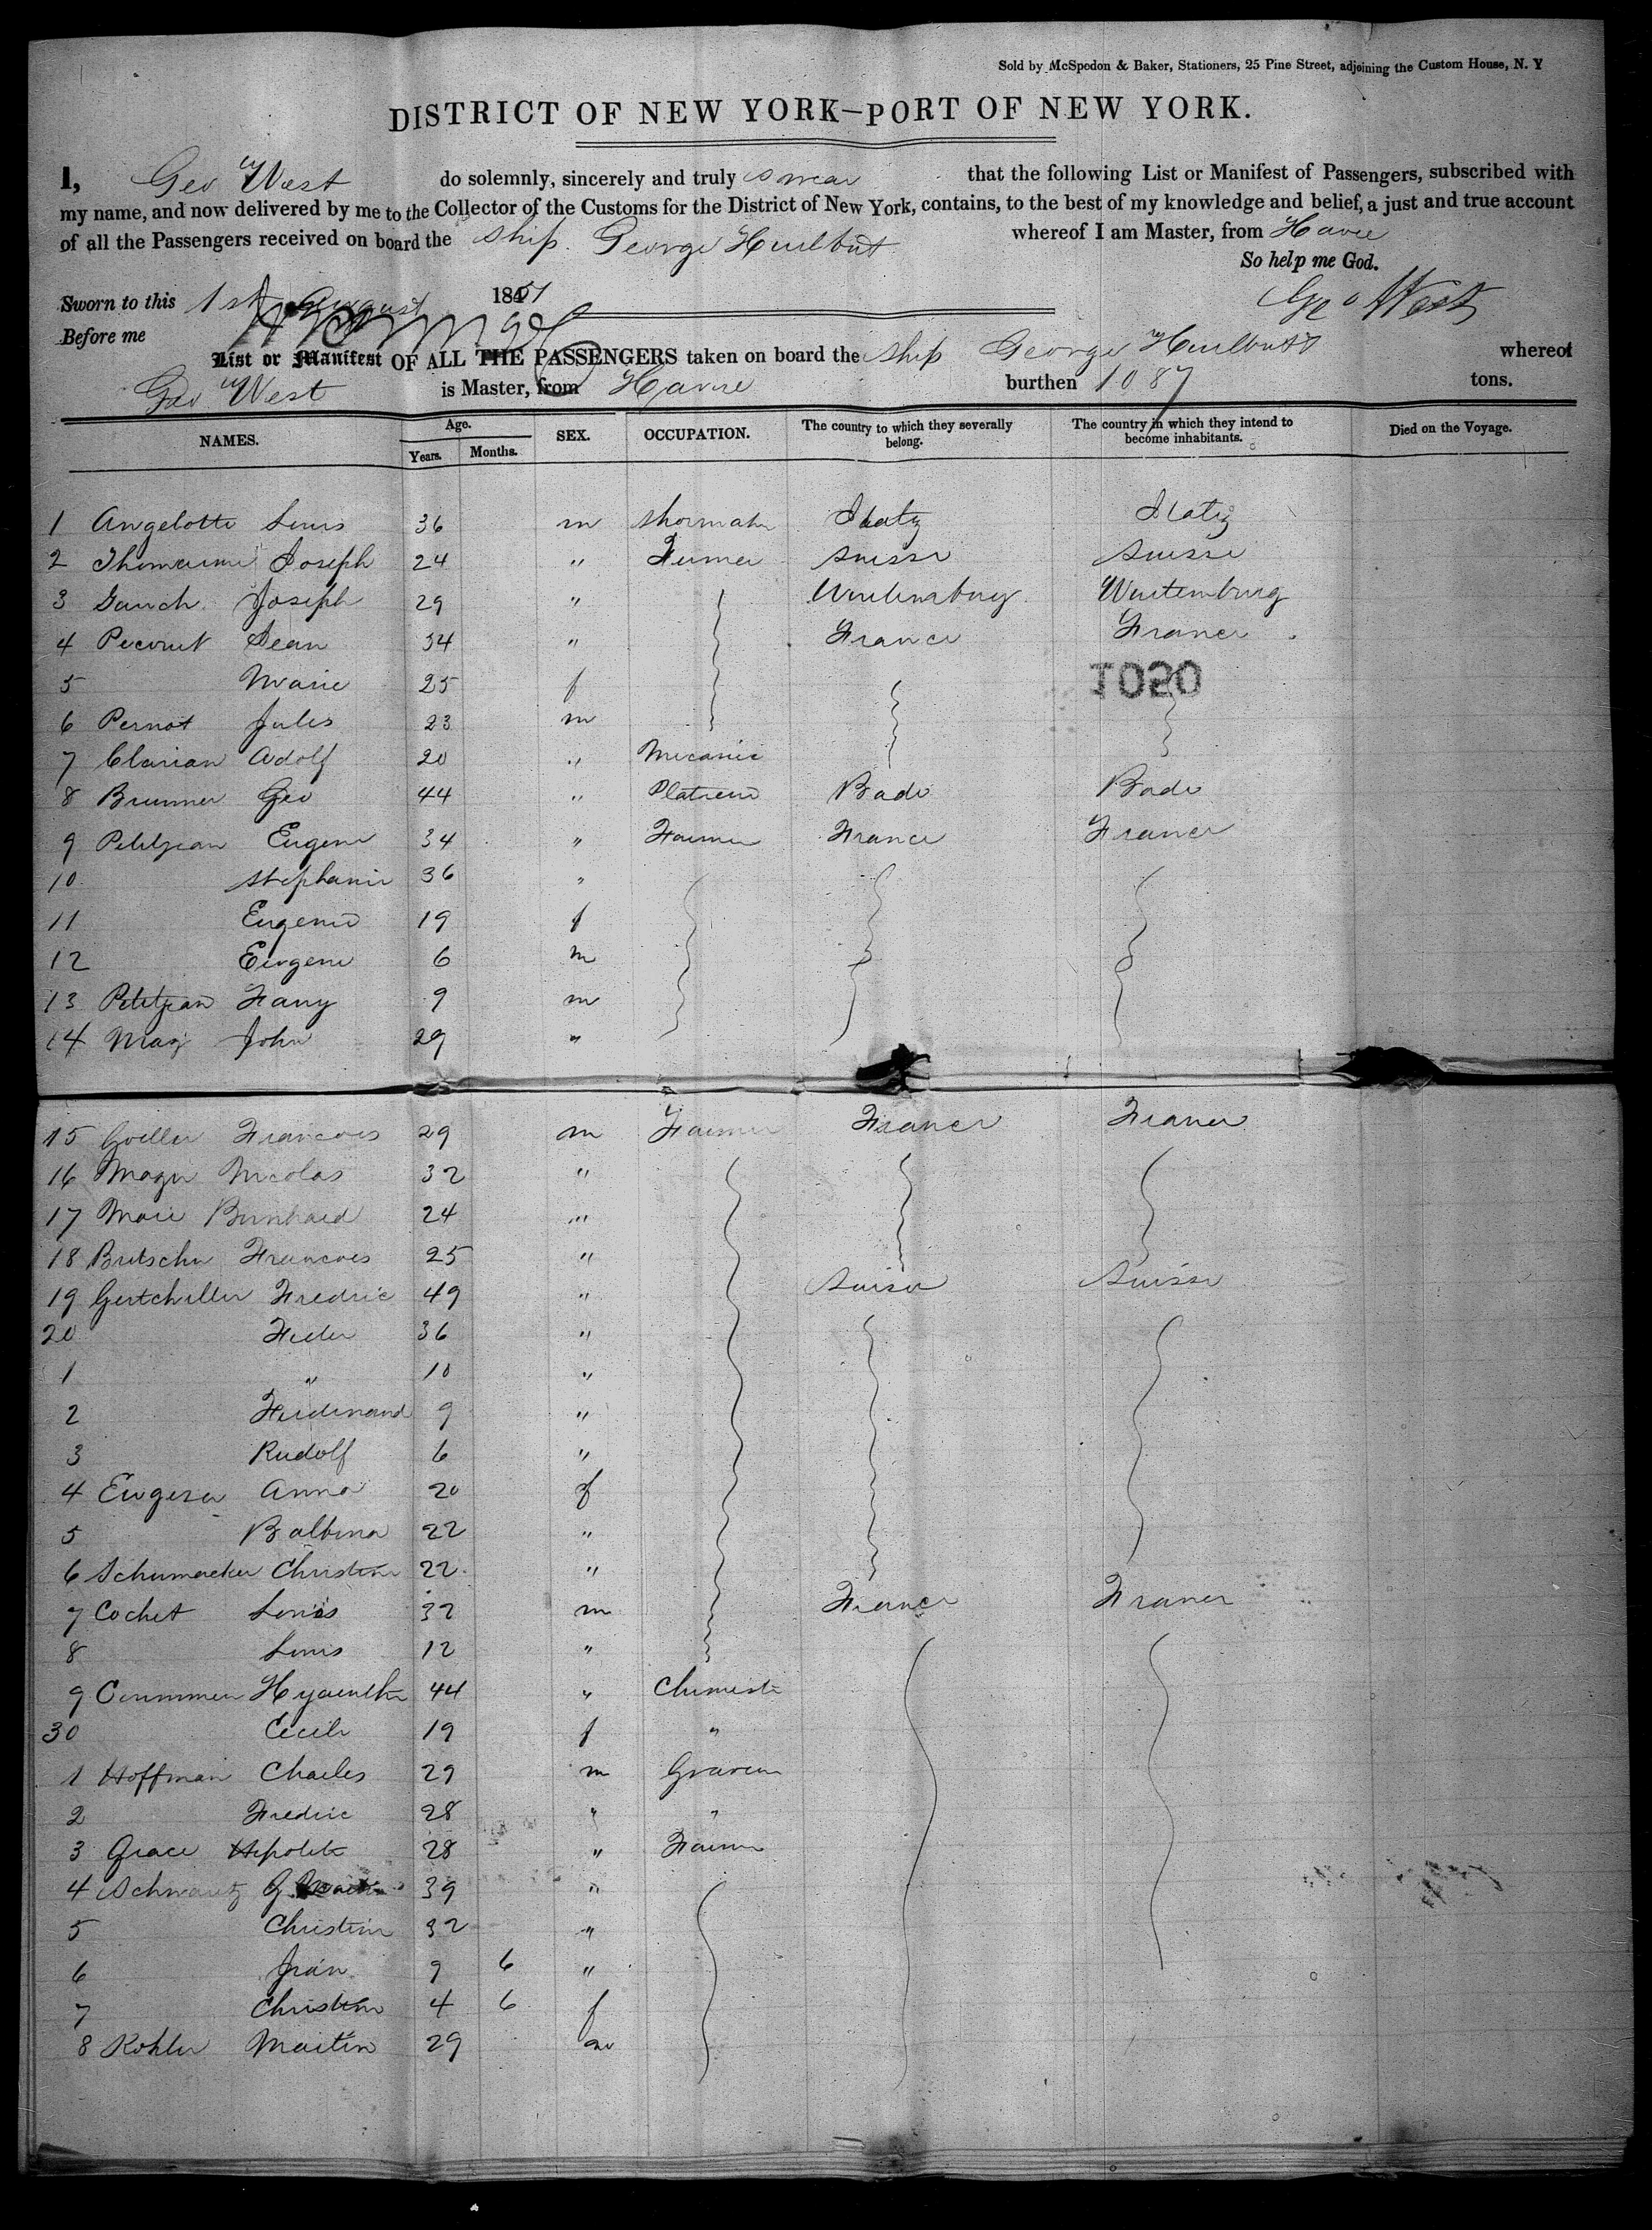 Sold by McSpedon & Baker, Stationers, 25 Pine Street, adjoining the Custom House, N. Y
DISTRICT OF NEW YORK—PORT OF NEW YORK.
I, Geo W West do solemnly, sincerely and truly swear that the following List or Manifest of Passengers, subscribed with
my name, and now delivered by me to the Collector of the Customs for the District of New York, contains, to the best of my knowledge and belief, a just and true account
of all the Passengers received on board the ship George Hurlbut whereof I am Master, from Havre
So help me God.
Sworn to this 1st August 1851 Geo West
Before me
List or Manifest OF ALL THE PASSENGERS taken on board the ship George Hurlbutt whereof
Geo W West is Master, from Havre burthen 1087 tons.
NAMES. Age. Years. Months. SEX. OCCUPATION. The country to which they severally belong. The country in which they intend to become inhabitants. Died on the Voyage.
1 Angelotti Louis 36 m
2 Joseph 24 " Suisse Suisse
3 Gauch Joseph 29 " Wurtemburg Wurtemburg
4 Pecout Jean 34 " France France
5 Marie 25 f 1020
6 Pernot Jules 23 m
7 Clarian Adolf 20 " Mecanic
8 Brunner Geo 44 " Bade Bade
9 Petitjean Eugene 34 " Farmer France France
10 Stephanie 36 "
11 Eugenie 19 f
12 Eugene 6 m
13 Petitjean Fany 9 m
14 May John 29 "
15 Francois 29 m Farmer France France
16 Nicolas 32 "
17 Bernhard 24 "
18 Francois 25 "
19 Fredric 49 " Suisse Suisse
20 36 "
1 " 10 "
2 Ferdinand 9 "
3 Rudolf 6 "
4 Anna 20 f
5 Balbina 22 "
6 Schumacker Christine 22 "
7 Cochet Louis 32 m France France
8 Louis 12 "
9 Hyacinthe 44 " Chimiste
30 Cecile 19 f "
1 Hoffman Charles 29 m Graveur
2 Fredric 28 " "
3 Grace Hipolite 28 " Farmer
4 Schwartz G. 39 "
5 Christine 32 "
6 Jean 9 6 "
7 Christine 4 6 f
8 Kohler Martin 29 m